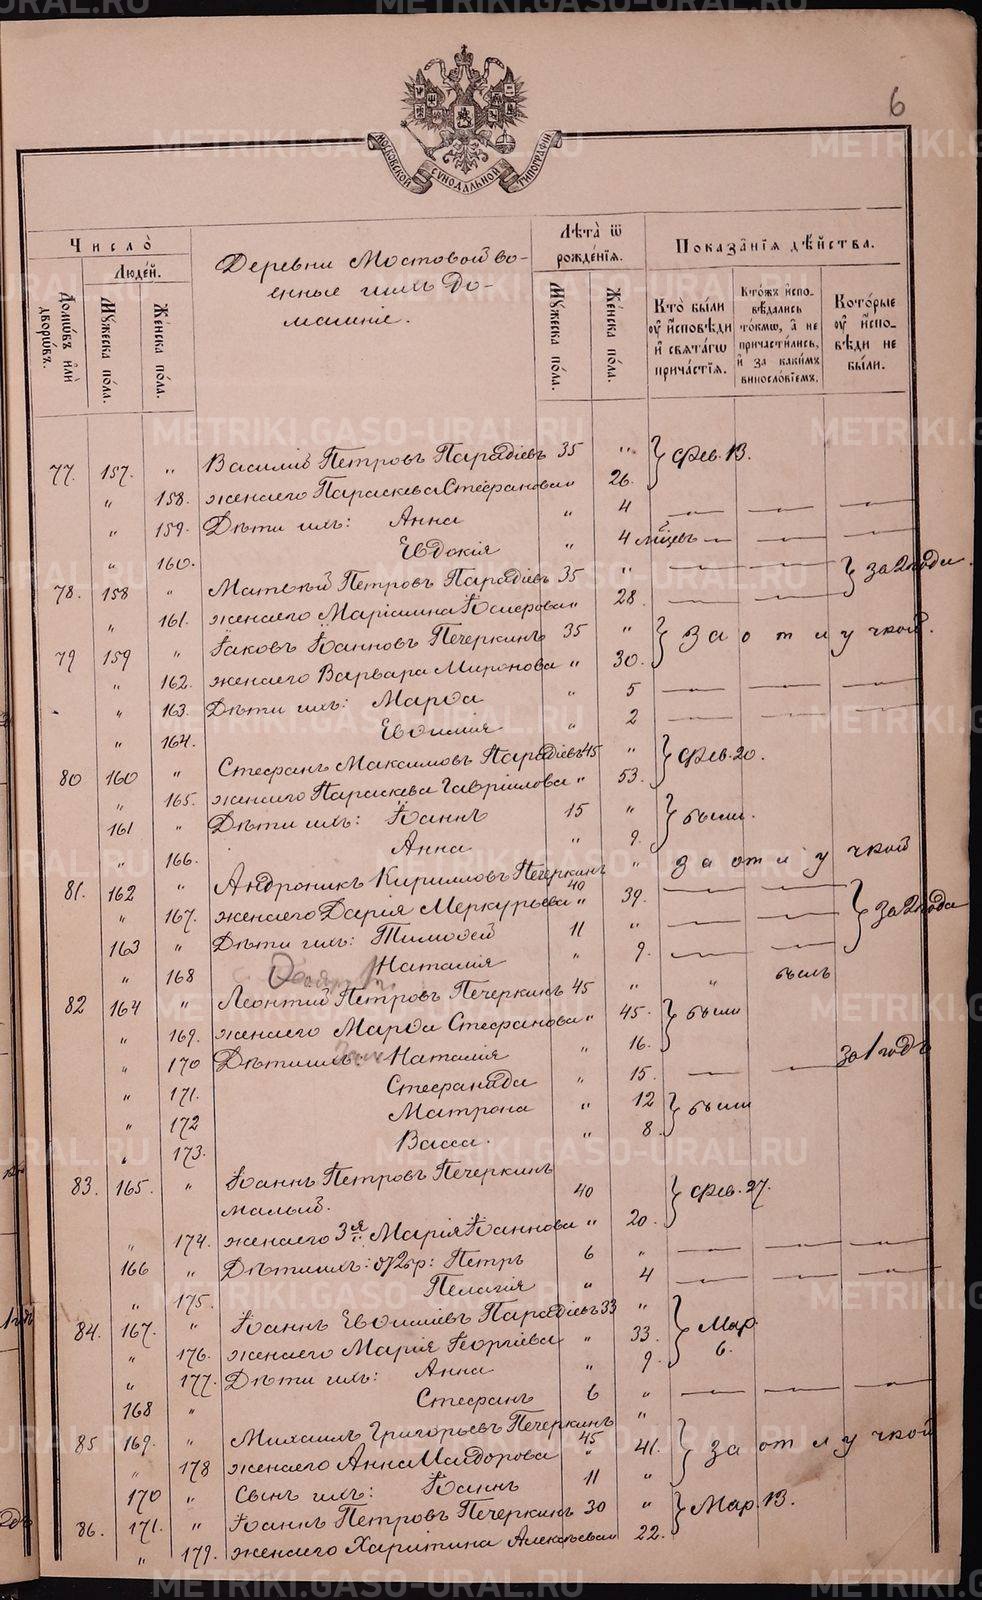 6
МОСКОВСКОЙ СѴНОДАЛЬНОЙ ТИПОГРАФІИ
Число̀
Людéй.
Домѡ́въ и҆лѝ дворѡ́въ.
Мꙋ́жеска по́ла.
Же́нска по́ла.
Деревни Мостовой во-
енные и ихъ до-
машніе.
Лѣ́та ѿ рожде́нїѧ.
Мꙋ́жеска по́ла.
Же́нска по́ла.
Показа̑нїѧ дѣ́йства.
Кто̀ бы́ли оу҆ и҆́сповѣди и҆ свѧта́гѡ прича́стїѧ.
Кто́жъ и҆сповѣ́дались то́кмѡ, а҆ не причасти́лись, и҆ за каки́мъ винослов́їемъ.
Кото́рые оу҆ и҆́сповѣди не бы́ли.
77. 157. " Василій Петровъ Парадіевъ 35 " Фев. 13.
" 158. жена его Параскева Стефанова " 26.
" 159. Дѣти ихъ: Анна " 4
" 160. Евдокія " 4 мѣсцевъ
78. 158 " Матѳій Петровъ Парадіевъ 35 " за 2 года.
" 161. жена его Маріамна " 28.
79 159 " Іаковъ Іоанновъ Печеркинъ 35 " За отлучкой.
" 162. жена его Варвара Миронова " 30.
" 163. Дѣти ихъ: Марѳа " 5
" 164. Евѳимія " 2
80 160 " Стефанъ Максимовъ Парадіевъ 45 " Фев. 20.
" 165. жена его Параскева Гавріилова " 53.
161 " Дѣти ихъ: Іоаннъ 15 " были.
" 166. Анна " 9.
81. 162 " Андроникъ Кирилловъ Печеркинъ 40 " за отлучкой
" 167. жена его Дарія Меркурьева " 39. за 2 года
163 " Дѣти ихъ: Тимоѳей 11 "
" 168 Наталія " 9.
82 164 " Леонтій Петровъ Печеркинъ 45 " " былъ
" 169. жена его Марѳа Стефанова " 45. были
" 170 Дѣти ихъ: Наталія " 16.
" 171. Стефанида " 15. за 1 годъ
" 172 Матрона " 12 были
" 173. Васса. " 8.
83. 165. " Іоаннъ Петровъ Печеркинъ
малый. 40 Фев. 27.
" 174. жена его 3я Марія Іоаннова " 20.
166 " Дѣти ихъ: от 2 бр: Петръ 6 "
" 175. Пелагія " 4
84. 167. " Іоаннъ Евѳиміевъ Парадіевъ 33 " Мар. 6.
" 176. жена его Марія Георгіева " 33.
" 177. Дѣти ихъ: Анна " 9.
168 " Стефанъ 6 "
85 169. " Михаилъ Григорьевъ Печеркинъ 45 " за отлучкой
" 178 жена его Анна " 41.
170 " Сынъ ихъ: Іоаннъ 11 "
86. 171. " Іоаннъ Петровъ Печеркинъ 30 " Мар. 13.
" 179. жена его Харитина Алексѣева " 22.
METRIKI.GASO-URAL.RU